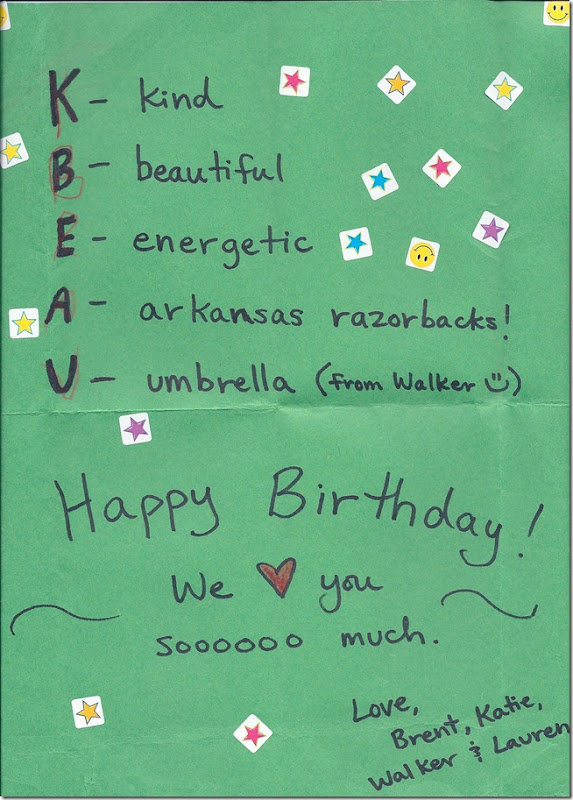 K - kind
B - beautiful
E - energetic
A - arkansas razorbacks!
U - umbrella (from Walker )
Happy Birthday!
We ♥ you
soooooo much.
Love,
Brent, Katie,
Walker & Lauren